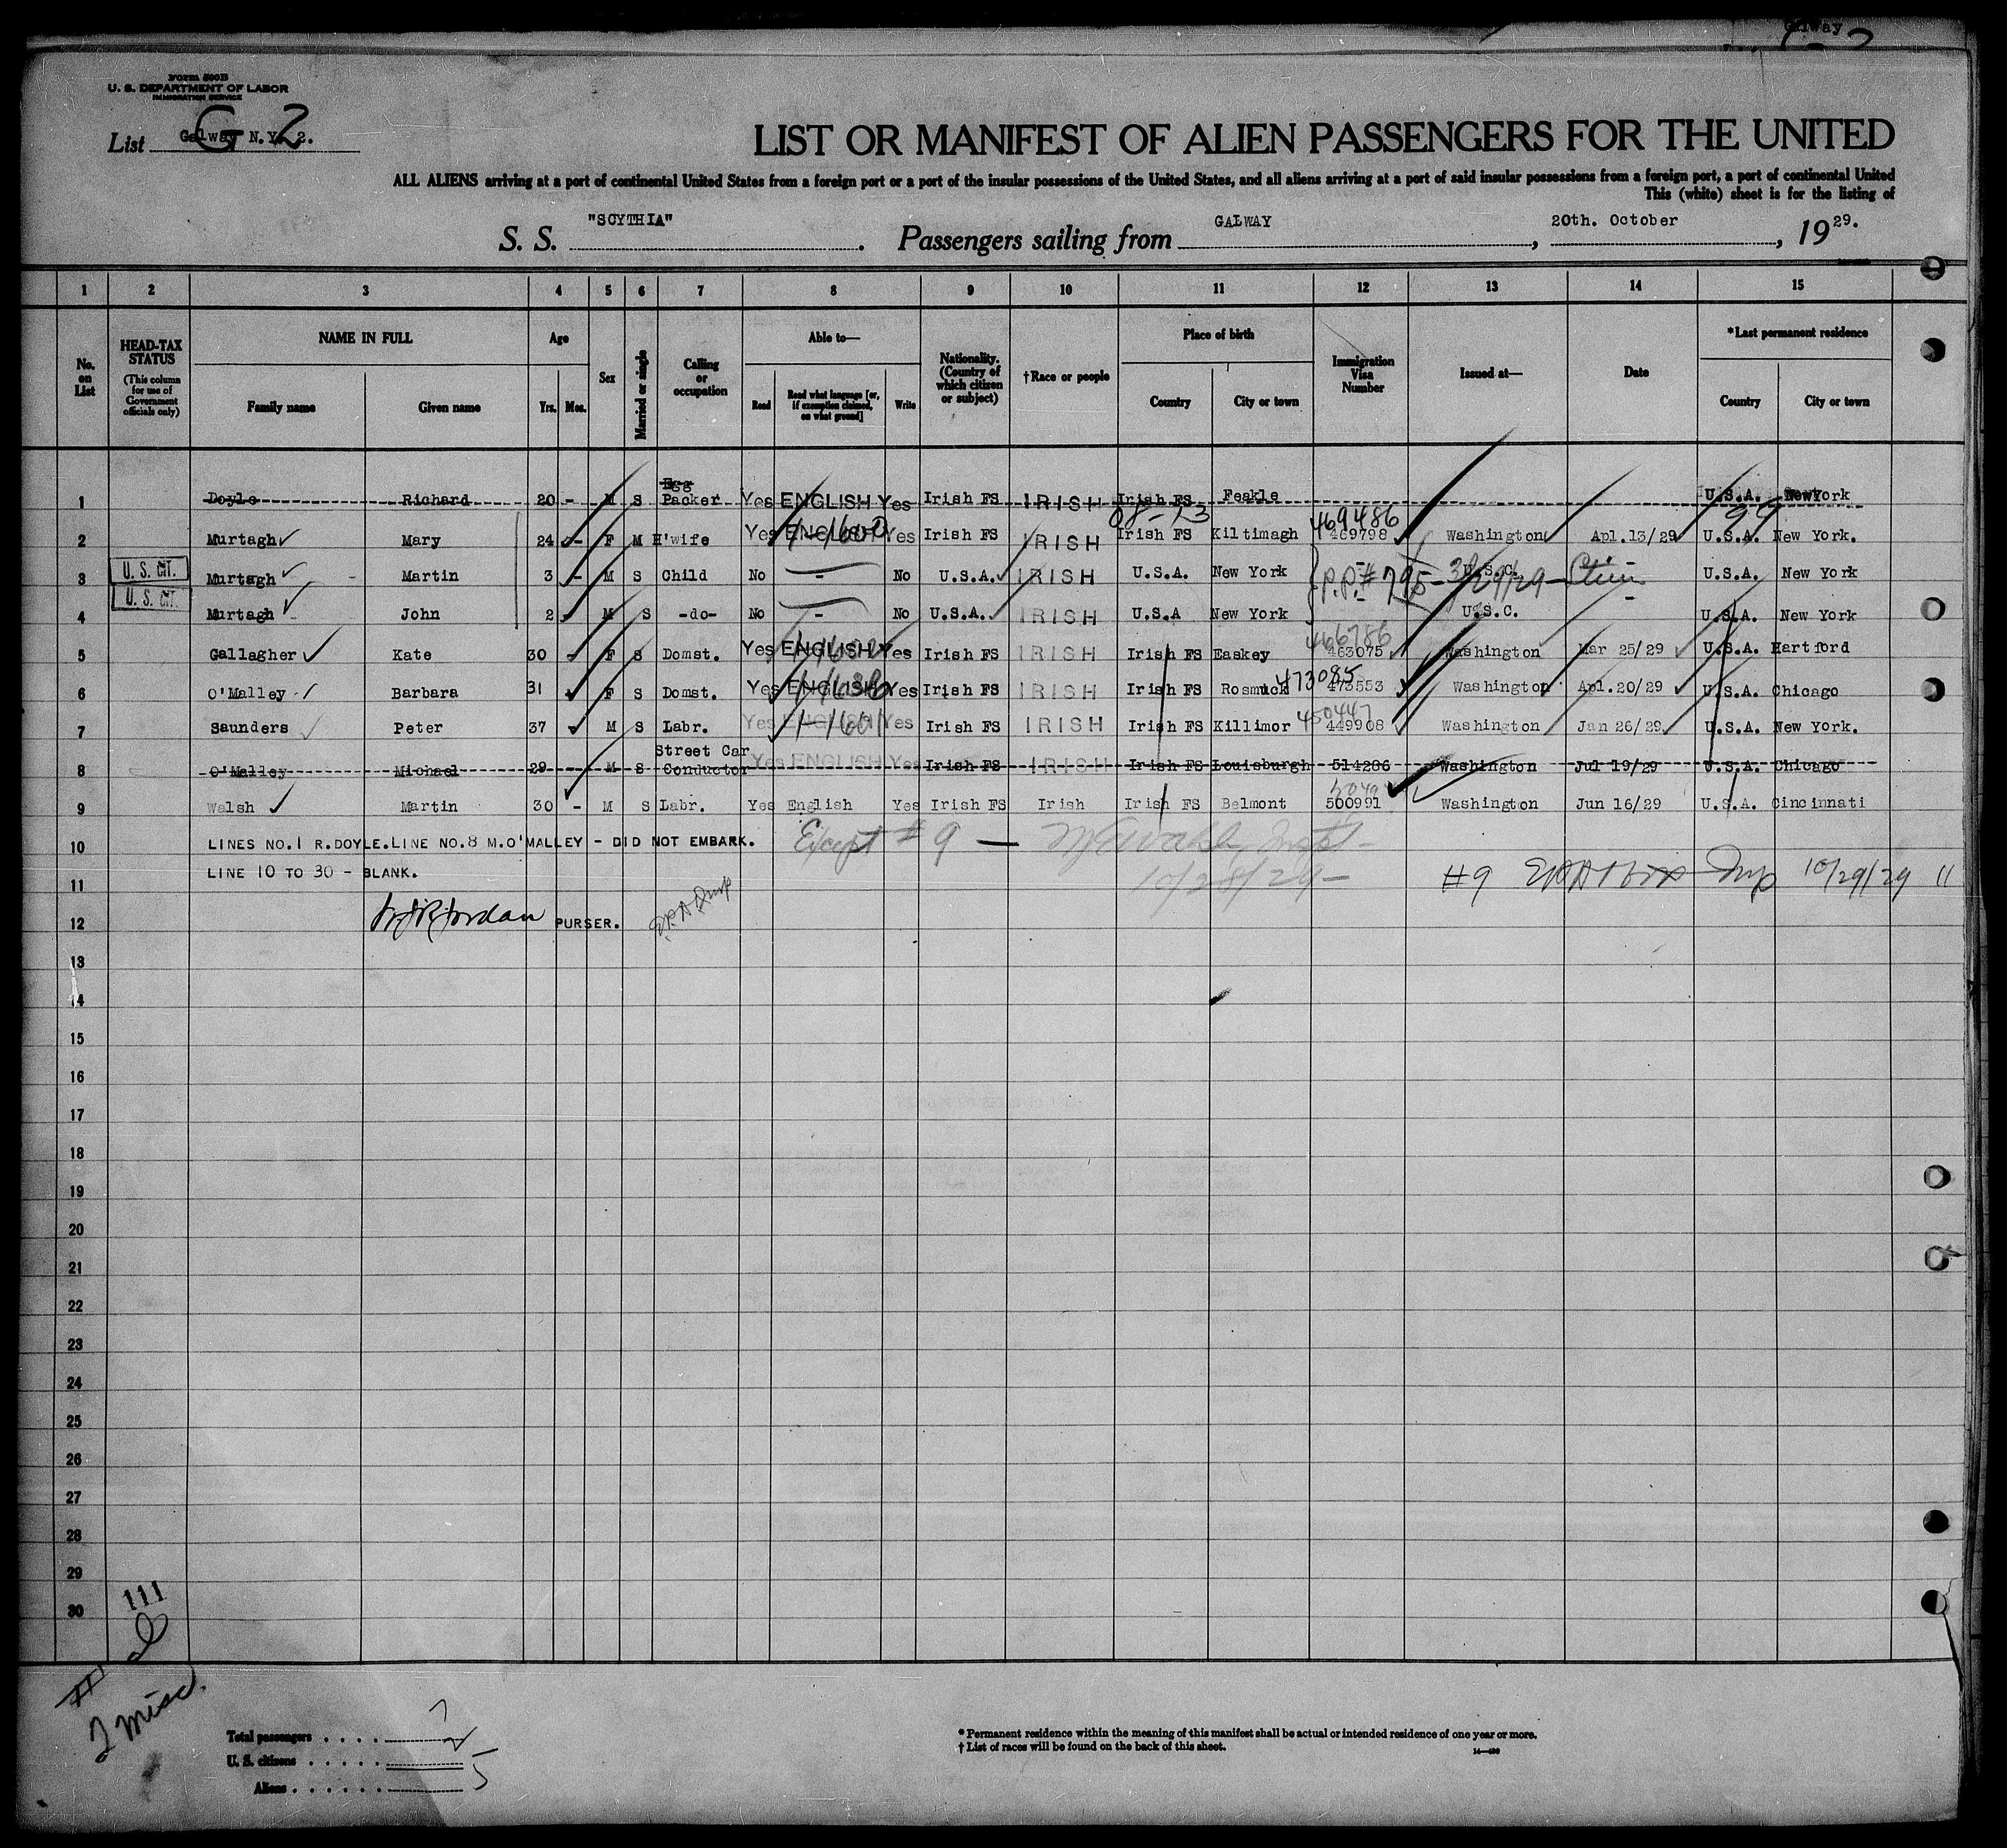 Galway
Form 500B
U. S. DEPARTMENT OF LABOR
IMMIGRATION SERVICE
List Galway N.Y. 2.
G 2
LIST OR MANIFEST OF ALIEN PASSENGERS FOR THE UNITED
ALL ALIENS arriving at a port of continental United States from a foreign port or a port of the insular possessions of the United States, and all aliens arriving at a port of said insular possessions from a foreign port, a port of continental United
This (white) sheet is for the listing of
S. S. "SCYTHIA" . Passengers sailing from GALWAY , 20th. October , 1929.
1 2 3 4 5 6 7 8 9 10 11 12 13 14 15
No. on List
HEAD-TAX STATUS (This column for use of Government officials only)
NAME IN FULL Family name Given name
Age Yrs. Mos.
Sex
Married or single
Calling or occupation
Able to— Read Read what language [or, if exemption claimed, on what ground] Write
Nationality. (Country of which citizen or subject)
†Race or people
Place of birth Country City or town
Immigration Visa Number
Issued at—
Date
*Last permanent residence Country City or town
1 Doyle Richard 20 - M S Egg Packer Yes ENGLISH Yes Irish FS IRISH Irish FS Feakle U.S.A. New York
08-13 99
2 Murtagh Mary 24 - F M H'wife Yes ENGLISH Yes Irish FS IRISH Irish FS Kiltimagh 469486 469798 Washington Apl.13/29 U.S.A. New York.
3 U. S. CIT. Murtagh Martin 3 - M S Child No - No U.S.A. IRISH U.S.A. New York - U.S.C. U.S.A. New York
P.P.# 795- 3/29/29
4 U. S. CIT. Murtagh John 2 M S -do- No - No U.S.A. IRISH U.S.A New York - U.S.C. - U.S.A. New York
5 Gallagher Kate 30 - F S Domst. Yes ENGLISH Yes Irish FS IRISH Irish FS Easkey 466786 463075 Washington Mar 25/29 U.S.A. Hartford
6 O'Malley Barbara 31 F S Domst. Yes ENGLISH Yes Irish FS IRISH Irish FS Rosmuck 473085 473553 Washington Apl.20/29 U.S.A. Chicago
7 Saunders Peter 37 M S Labr. Yes ENGLISH Yes Irish FS IRISH Irish FS Killimor 450447 449908 Washington Jan 26/29 U.S.A. New York.
8 O'Malley Michael 29 - M S Street Car Conductor Yes ENGLISH Yes Irish FS IRISH Irish FS Louisburgh 514286 Washington Jul 19/29 U.S.A. Chicago
9 Walsh Martin 30 - M S Labr. Yes English Yes Irish FS Irish Irish FS Belmont 500991 Washington Jun 16/29 U.S.A. Cincinnati
10 LINES NO.1 R.DOYLE.LINE NO.8 M.O'MALLEY - DID NOT EMBARK. Except #9 —
11 LINE 10 TO 30 - BLANK. 10/28/29- #9 Insp 10/29/29
12 Jordan PURSER.
13
14
15
16
17
18
19
20
21
22
23
24
25
26
27
28
29
30
111
2 misc.
Total passengers . . . . 7
U. S. citizens . . . . . 2
Aliens . . . . . . 5
* Permanent residence within the meaning of this manifest shall be actual or intended residence of one year or more.
† List of races will be found on the back of this sheet.